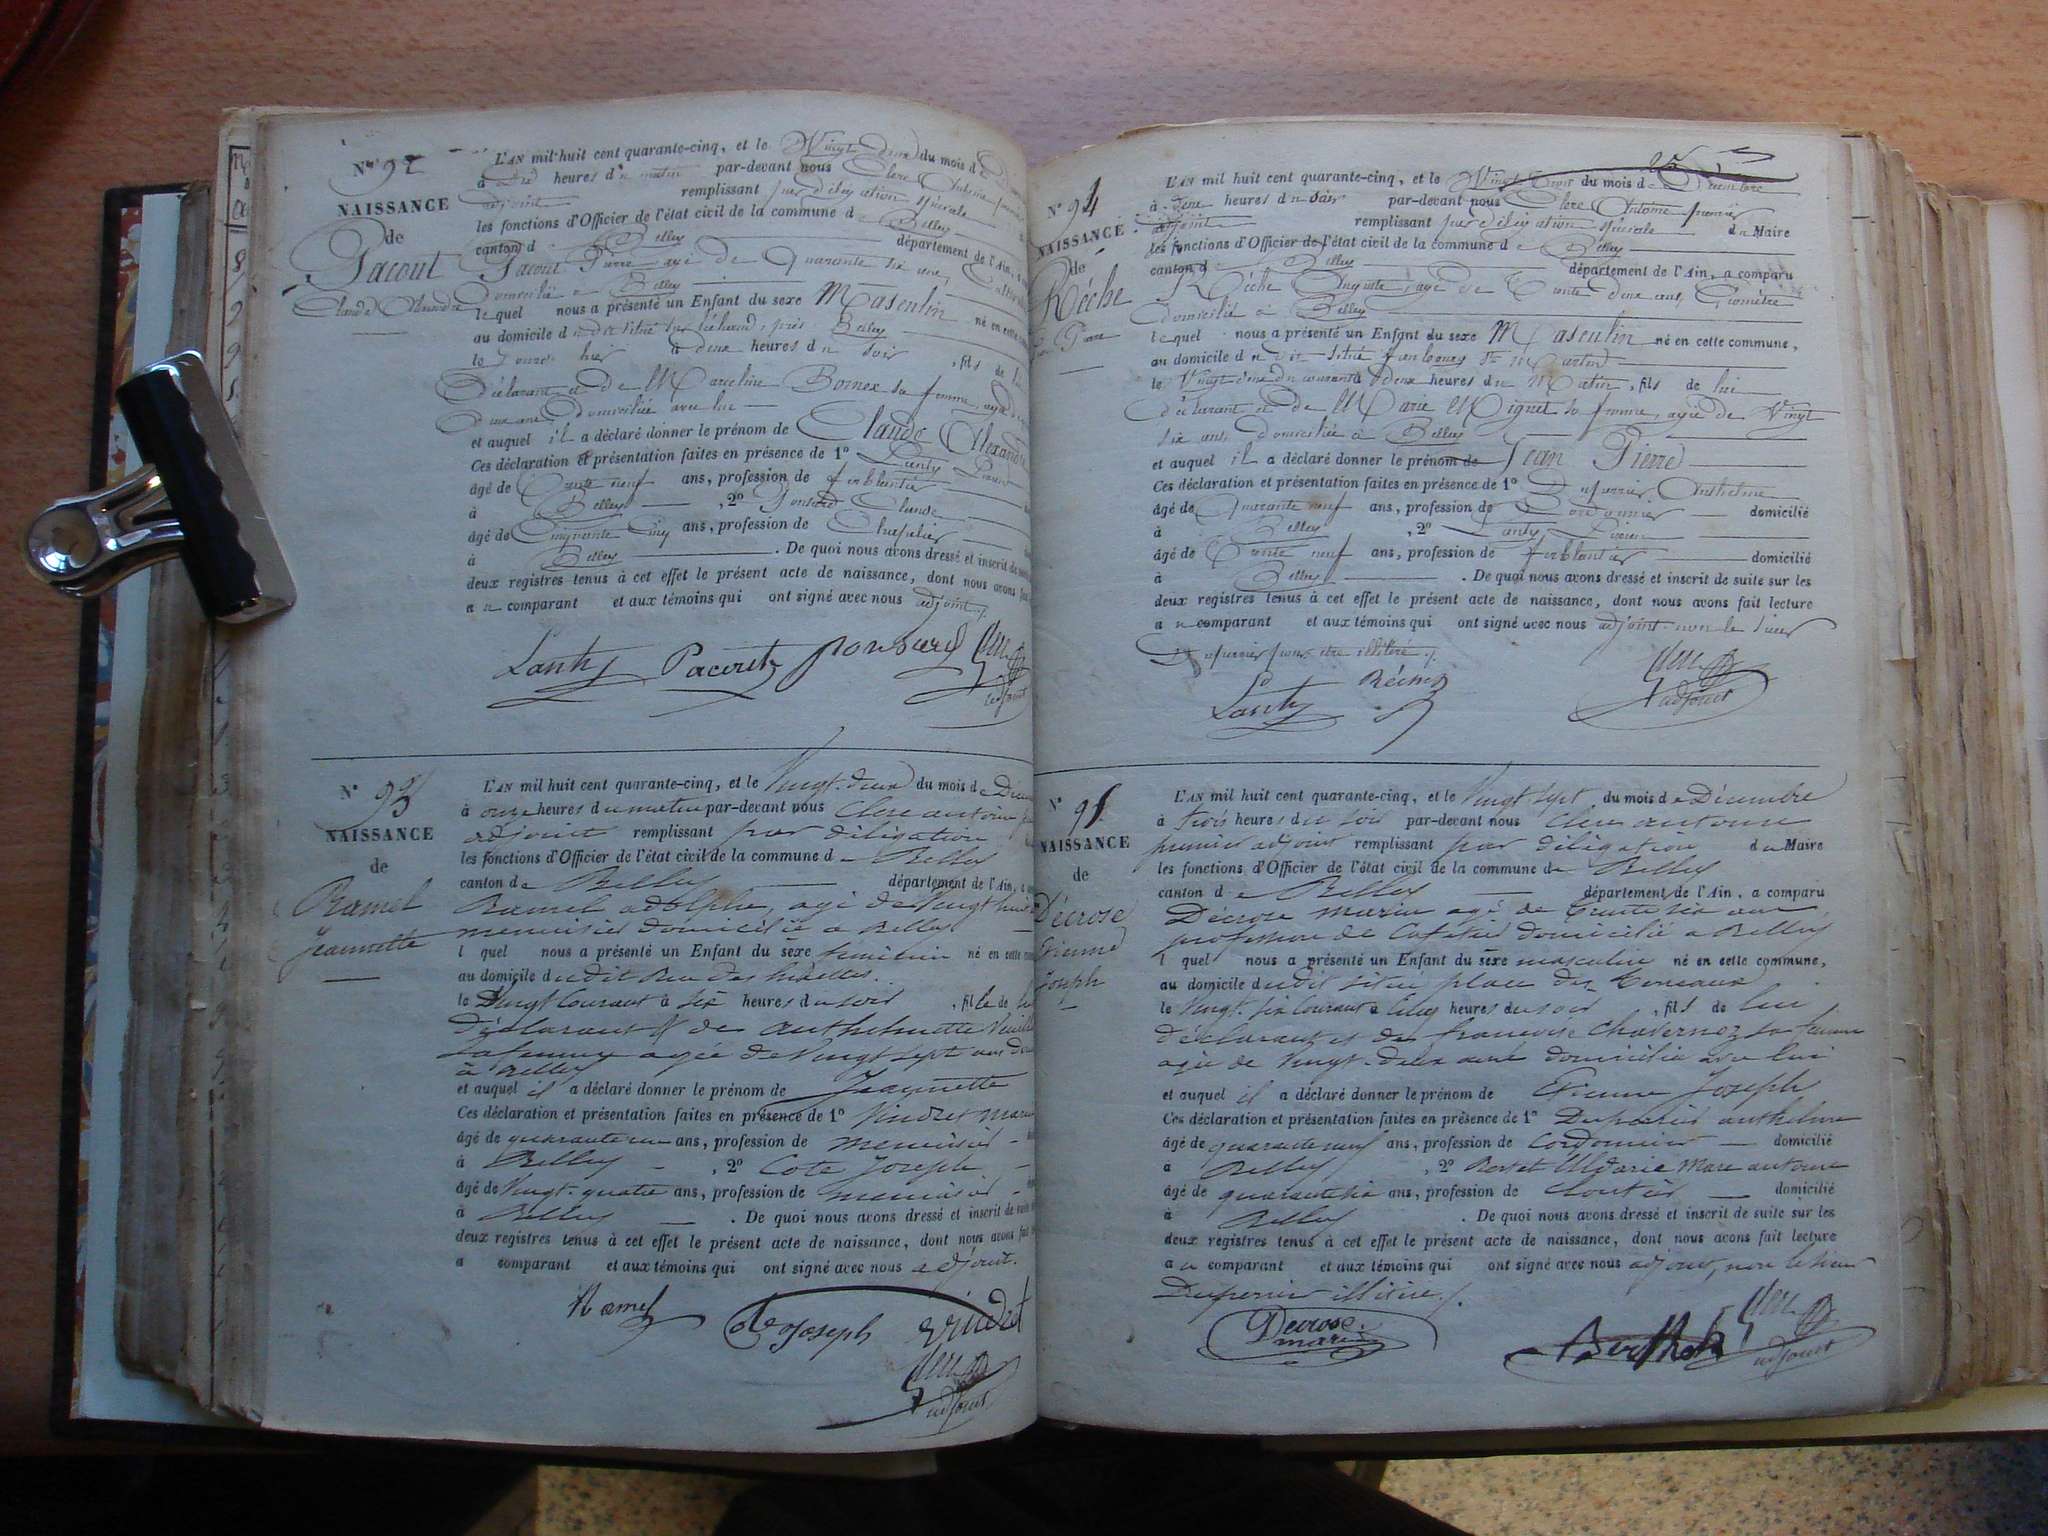 N° 92
NAISSANCE
de
Pacout
Claude Alexandre
L'AN mil huit cent quarante-cinq, et le Vingt deux du mois d
à heures du matin par-devant nous Clerc Antoine premier
adjoint remplissant par délégation spéciale
les fonctions d'Officier de l'état civil de la commune de Belley
canton de Belley département de l'Ain, a
Pacout Pierre agé de Quarante six ans,
domicilié à Belley
lequel nous a présenté un Enfant du sexe Masculin né en cette
au domicile du dit situé sur près Belley
le hier à deux heures du soir, fils de lui
Déclarant et de Marceline Bornex sa femme, agée de
deux ans, domiciliée avec lui
et auquel il a déclaré donner le prénom de Claude Alexandre
Ces déclaration et présentation faites en présence de 1° Lanty Pierre
âgé de Trente neuf ans, profession de ferblantier
à Belley, 2° Ponsard Claude
âgé de Cinquante Cinq ans, profession de Chapelier
à Belley. De quoi nous avons dressé et inscrit de suite
deux registres tenus à cet effet le présent acte de naissance, dont nous avons fait
au comparant et aux témoins qui ont signé avec nous adjoint ./.
Lanty Pacout Ponsard Clerc
adjoint
N° 93
NAISSANCE
de
Ramel
Jeannette
L'AN mil huit cent quarante-cinq, et le Vingt-deux du mois de Décem
à onze heures du matin par-devant nous Clerc antoine
adjoint remplissant par délégation
les fonctions d'Officier de l'état civil de la commune de Belley
canton de Belley département de l'Ain, a
Ramel adolphe, agé de Vingt huit
menuisier domicilié à Belley
l quel nous a présenté un Enfant du sexe féminin né en cette
au domicile du dit Rue des
le Vingt Courant à six heures du soir, fille de lui
Déclarant & de anthelmette
sa femme agée de Vingt sept ans
à Belley
et auquel il a déclaré donner le prénom de Jeannette
Ces déclaration et présentation faites en présence de 1° Vindret
âgé de quarante un ans, profession de menuisier
à Belley, 2° Cote Joseph
âgé de Vingt-quatre ans, profession de menuisier
à Belley. De quoi nous avons dressé et inscrit de suite
deux registres tenus à cet effet le présent acte de naissance, dont nous avons fait
a comparant et aux témoins qui ont signé avec nous adjoint.
Ramel Cote Joseph Vindret
Clerc
adjoint
N° 94
NAISSANCE
de
Réche
Jean Pierre
L'AN mil huit cent quarante-cinq, et le Vingt Trois du mois de Décembre
à heures du soir par-devant nous Clerc Antoine premier
adjoint remplissant par délégation spéciale du Maire
les fonctions d'Officier de l'état civil de la commune de Belley
canton de Belley département de l'Ain, a comparu
Réche Auguste, agé de Trente deux ans, Géomètre
domicilié à Belley
lequel nous a présenté un Enfant du sexe Masculin né en cette commune,
au domicile du dit situé faubourg St Martin
le Vingt deux du courant à deux heures du Matin, fils de lui
déclarant et de Marie Miguet sa femme, agée de Vingt
six ans, domiciliée à Belley
et auquel il a déclaré donner le prénom de Jean Pierre
Ces déclaration et présentation faites en présence de 1° Duperrier Anthelme
âgé de Quarante neuf ans, profession de Cordonnier domicilié
à Belley, 2° Lanty Pierre
âgé de Trente neuf ans, profession de ferblantier domicilié
à Belley. De quoi nous avons dressé et inscrit de suite sur les
deux registres tenus à cet effet le présent acte de naissance, dont nous avons fait lecture
au comparant et aux témoins qui ont signé avec nous adjoint non le sieur
Duperrier pour être illitéré ./.
Lanty Réche Clerc
adjoint
N° 95
NAISSANCE
de
Décrose
Etienne
Joseph
L'AN mil huit cent quarante-cinq, et le Vingt sept du mois de Décembre
à trois heures du soir par-devant nous Clerc antoine
premier adjoint remplissant par délégation du Maire
les fonctions d'Officier de l'état civil de la commune de Belley
canton de Belley département de l'Ain, a comparu
Décrose marin agé de trente six ans
profession de Cafetier domicilié à Belley
l quel nous a présenté un Enfant du sexe masculin né en cette commune,
au domicile du dit situé place des Terreaux
le Vingt-six Courant à Cinq heures du soir, fils de lui
déclarant et de françoise Chavernoz sa femme
agée de Vingt-deux ans domiciliée avec lui
et auquel il a déclaré donner le prénom de Etienne Joseph
Ces déclaration et présentation faites en présence de 1° Duperrier anthelme
âgé de quarante neuf ans, profession de Cordonnier domicilié
à Belley, 2° marc antoine
âgé de quarante six ans, profession de domicilié
à Belley. De quoi nous avons dressé et inscrit de suite sur les
deux registres tenus à cet effet le présent acte de naissance, dont nous avons fait lecture
au comparant et aux témoins qui ont signé avec nous adjoint, non le sieur
Duperrier illitéré ./.
Decrose
marin
Clerc
adjoint